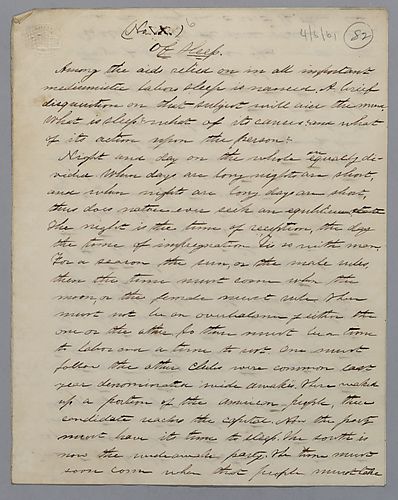 (No. X.) 6
4/8/61
82
Of Sleep.
Among the aids relied on in all important
mediumistic labors sleep is named. A brief
disquisition on that subject will aid the man.
What is sleep? what of its causes? and what
of its action upon the person?
Night and day on the whole are equally di-
vided. When days are long nights are short,
and when nights are long days are short,
thus does nature ever seek an equilibrium state
The night is the time of reception, the day
the time of impregnation. So is with man.
For a season the sun, or the male rules,
then the time must come when the
moon, or the female must rule. There
must not be an overbalance of either the
one or the other. So there must be a time
to labor and a time to rest. One must
follow the other. Clubs were common last
year denominated wide awakes. These waked
up a portion of the American people, their
candidate reaches the capitol. Now the party
must have its time to sleep. The south is
now the wide awake party. The time must
soon come when that people must take